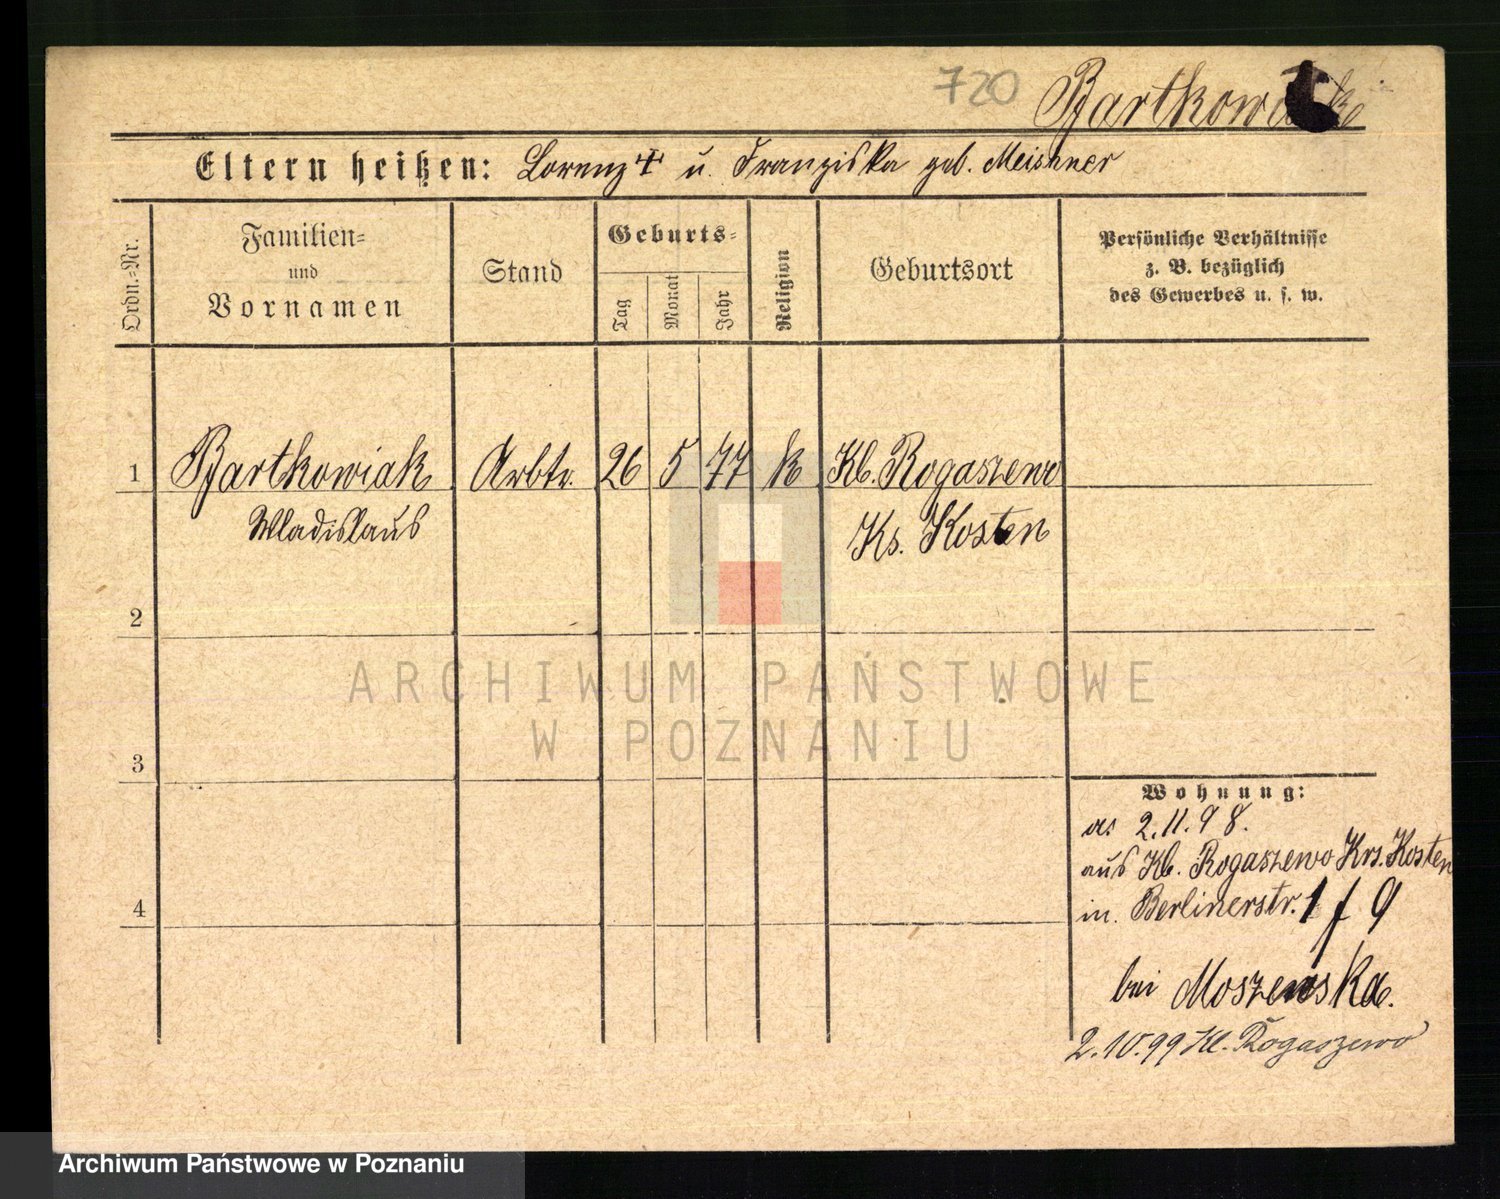 720
Bartkowiak
Eltern heißen: Lorenz † u. Franziska geb. Meissner
Ordn.-Nr.
Familien-
und
Vornamen
Stand
Geburts-
Tag
Monat
Jahr
Religion
Geburtsort
Persönliche Verhältnisse
z. B. bezüglich
des Gewerbes u. s. w.
1 Bartkowiak Arbtr. 26 5 77 k Kl. Rogaszewo
Wladislaus Ks. Kosten
2
ARCHIWUM PAŃSTWOWE
W POZNANIU
3
Wohnung:
a: 2.11.98.
aus Kl. Rogaszewo Krs. Kosten
4
in Berlinerstr. 1 f 9
bei Moszenska.
2.10.99 Kl. Rogaszewo
Archiwum Państwowe w Poznaniu